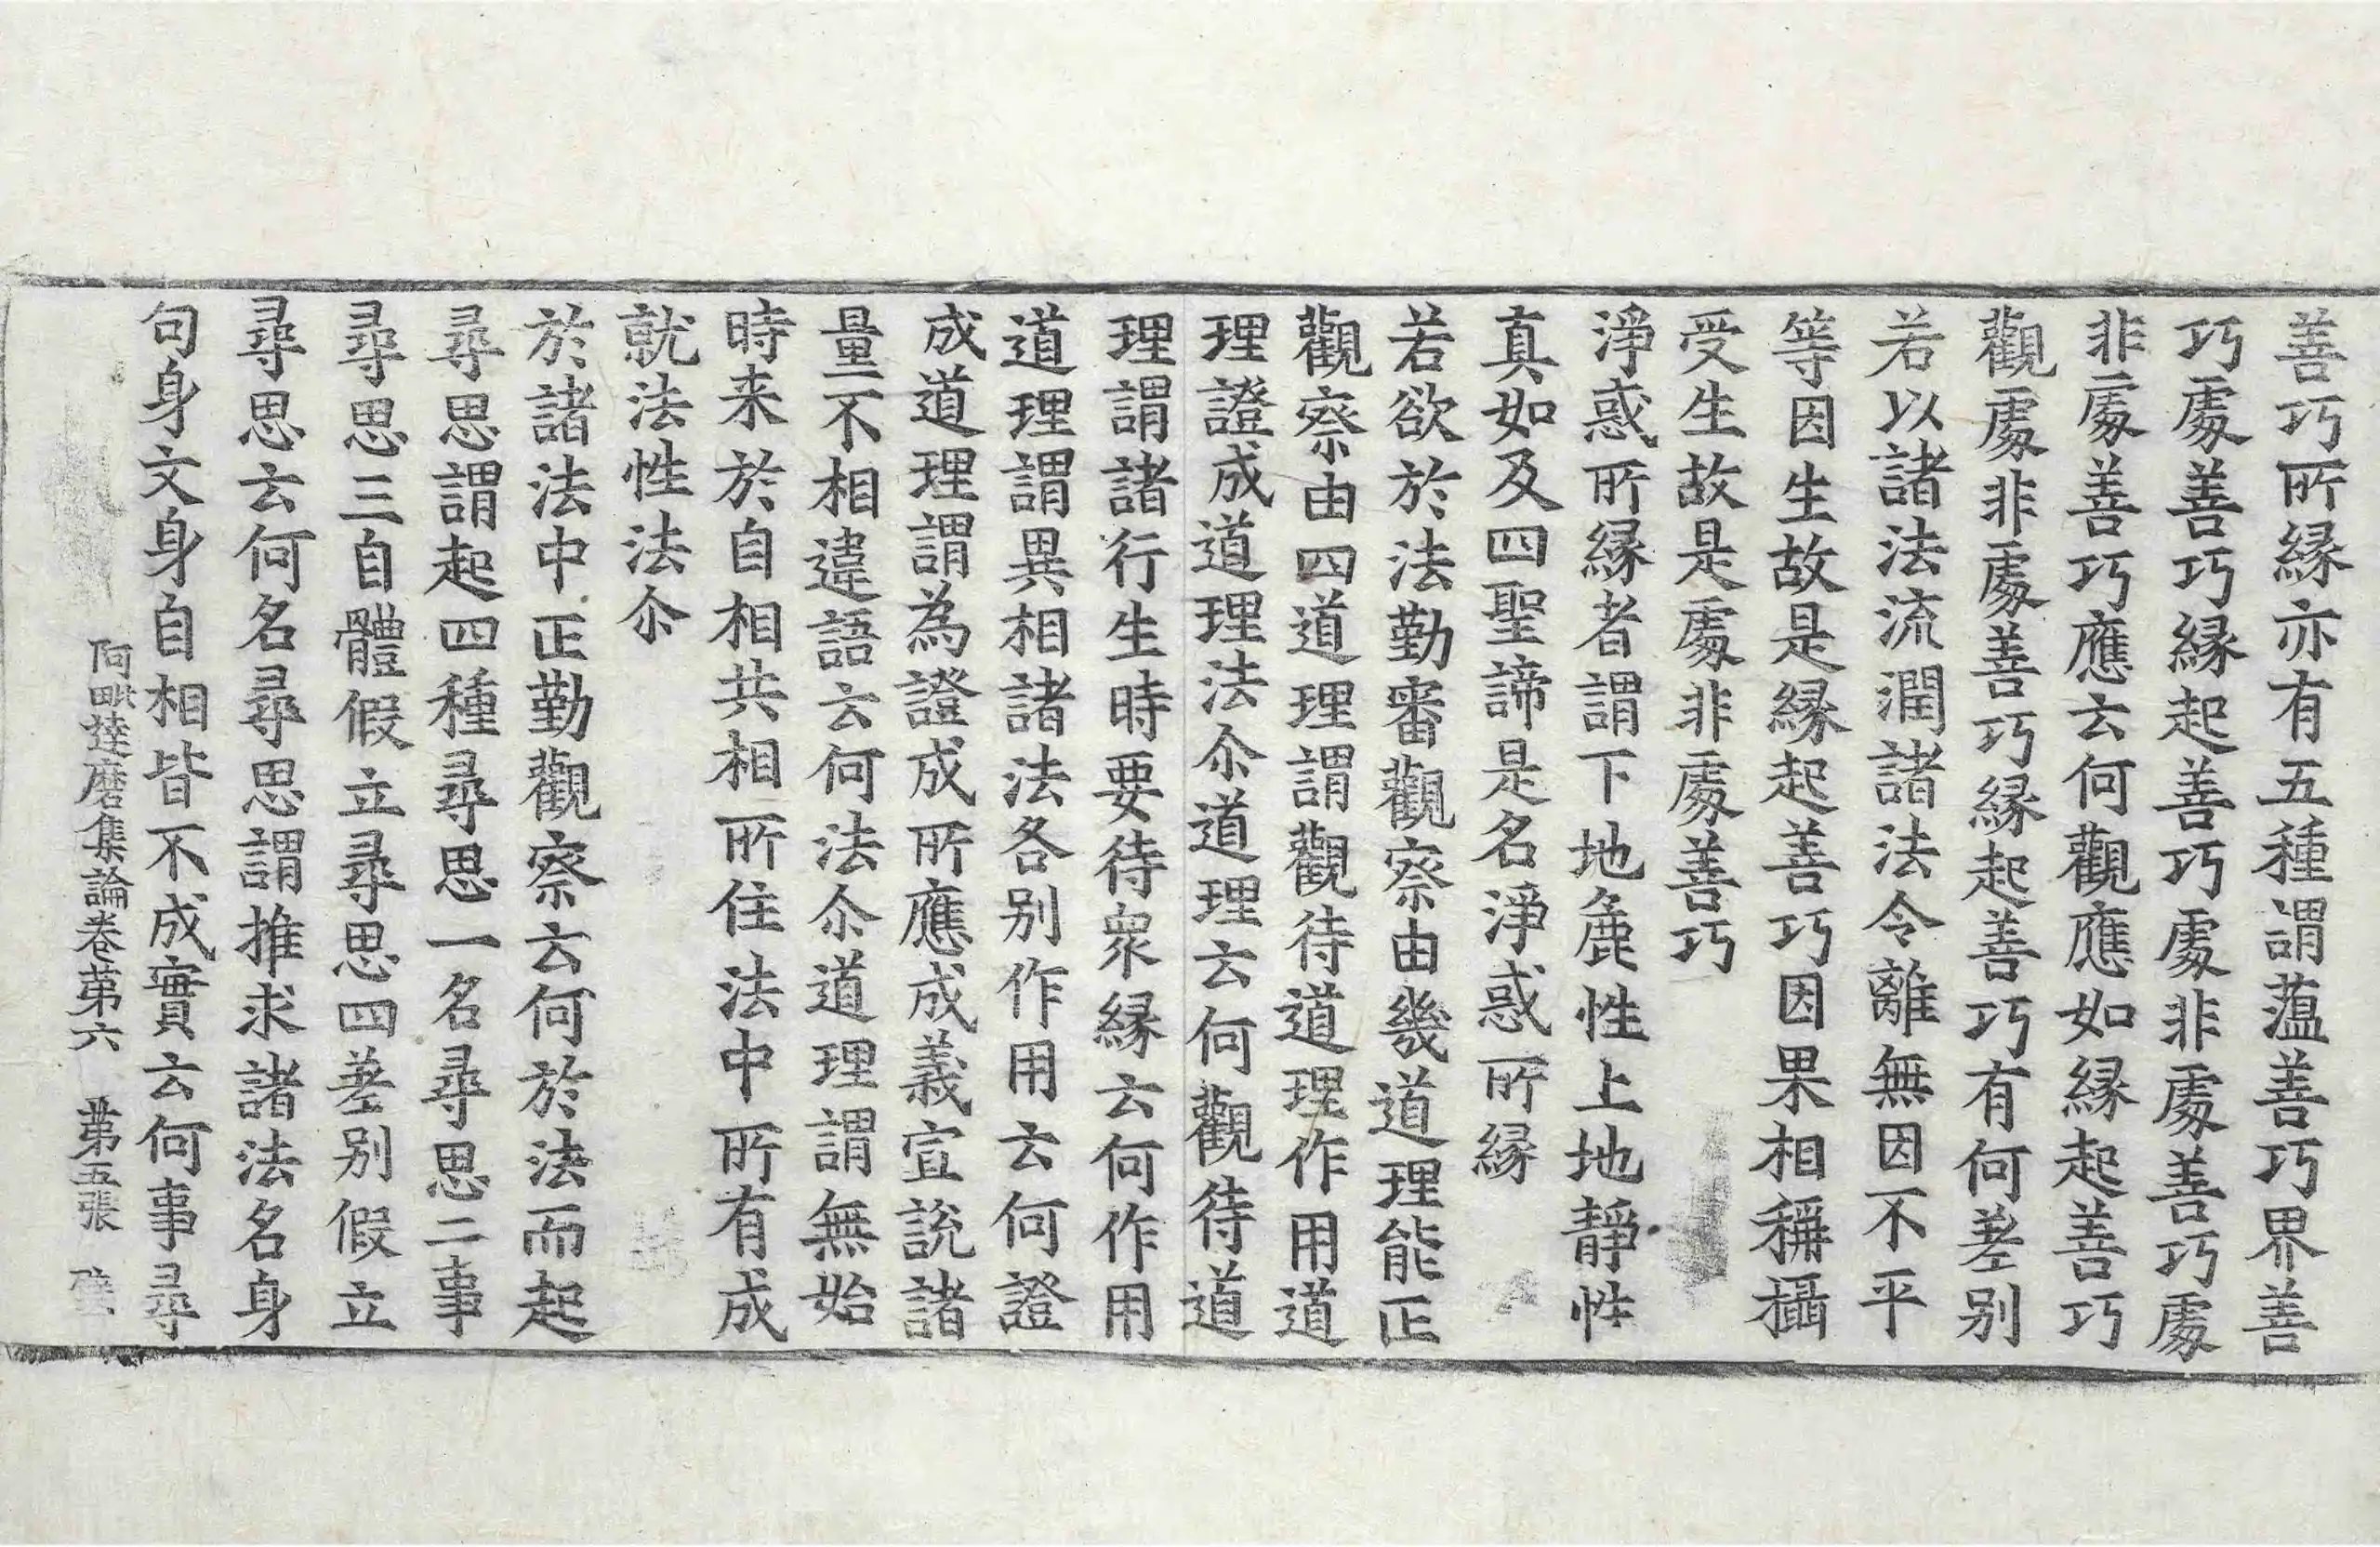 善巧所縁亦有五種謂蕰善巧界善
巧處善巧縁起善巧處非處善巧處
非處善巧應云何觀應如縁起善巧
觀處非處善巧縁起善巧有何差别
若以諸法流潤諸法令離無因不平
等因生故是縁起善巧因果相稱攝
受生故是處非處善巧
淨惑所縁者謂下地麁性上地靜性
真如及四聖諦是名淨惑所縁
若欲於法勤審觀察由幾道理能正
觀察由四道理謂觀待道理作用道
理證成道理法尒道理云何觀待道
理謂諸行生時要待衆縁云何作用
道理謂異相諸法各别作用云何證
成道理謂為證成所應成義宣說諸
量不相違語云何法尒道理謂無始
時来於自相共相所住法中所有成
就法性法尒
於諸法中正勤觀察云何於法而起
尋思謂起四種尋思一名尋思二事
尋思三自體假立尋思四差别假立
尋思云何名尋思謂推求諸法名身
句身文身自相皆不成實云何事尋
阿毗達磨集論卷苐六 苐五張